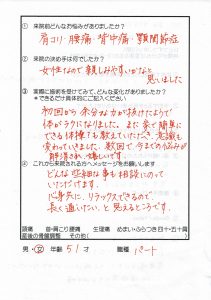 ① 来院前どんなお悩みがありましたか?
肩コリ・腰痛・背中痛・顎関節症
② 来院の決め手は何でしたか?
女性なので親しみやすいかなと
思いました
③ 実際に施術を受けてみて、どんな変化がありますか?
*できるだけ具体的にご記入ください
初回から余分な力が抜けたようで
体がラクになりました。また家で簡単に
できる体操も教えていただき、意識も
変わっていきました。数回で今までの悩みが
解消され、嬉しいです
④ これから来院される方へメッセージをお願いします
どんな些細な事も相談にのって
いただけます。
心身共に、リラックスできるので、
長く通いたい、と思えるところです。
頭痛 首・肩こり 腰痛 生理痛 めまい・ふらつき 四十・五十肩
産後の骨盤調整 その他(
男・女 年齢 51才 職種 パート